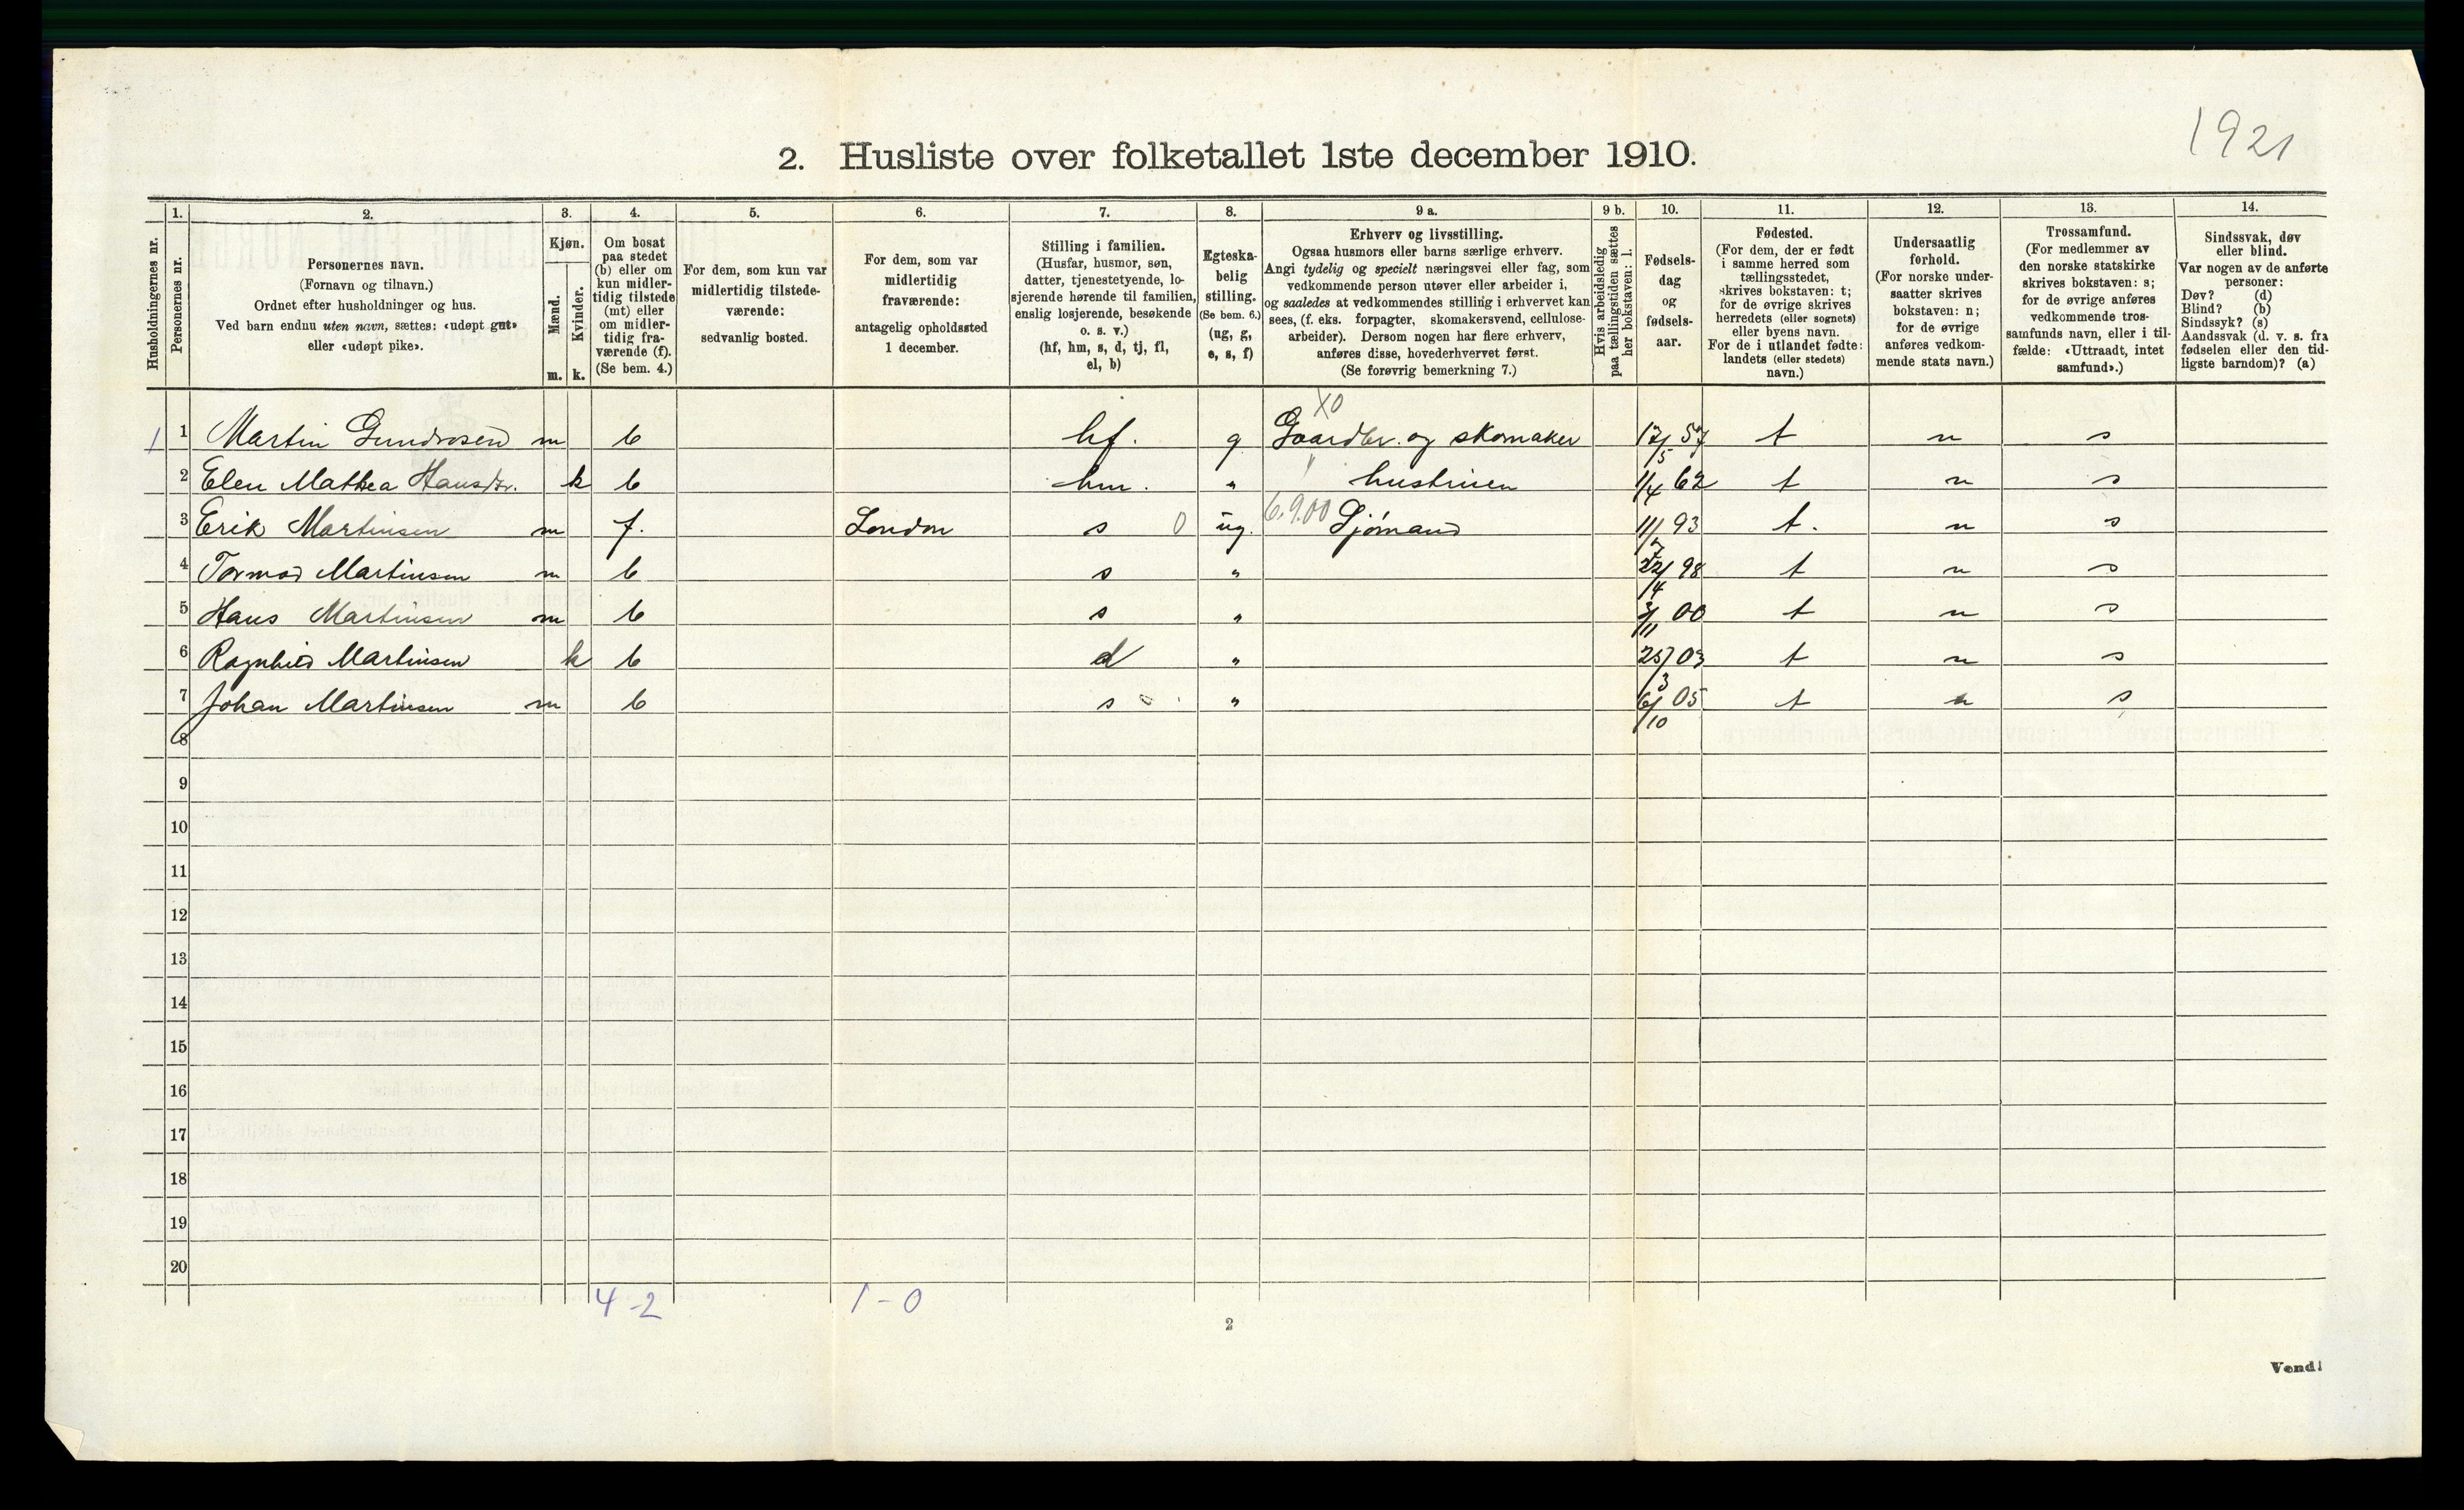 1921
2. Husliste over folketallet 1ste december 1910.
1. 2. 3. 4. 5. 6. 7. 8. 9 a. 9 b. 10. 11. 12. 13. 14.
Husholdningernes nr.
Personernes nr.
Personernes navn.
(Fornavn og tilnavn.)
Ordnet efter husholdninger og hus.
Ved barn endnu uten navn, sættes: «udøpt gut»
eller «udøpt pike».
Kjøn.
Mænd.
Kvinder.
m. k.
Om bosat
paa stedet
(b) eller om
kun midler-
tidig tilstede
(mt) eller
om midler-
tidig fra-
værende (f).
(Se bem. 4.)
For dem, som kun var
midlertidig tilstede-
værende:
sedvanlig bosted.
For dem, som var
midlertidig
fraværende:
antagelig opholdssted
1 december.
Stilling i familien.
(Husfar, husmor, søn,
datter, tjenestetyende, lo-
sjerende hørende til familien,
enslig losjerende, besøkende
o. s. v.)
(hf, hm, s, d, tj, fl,
el, b)
Egteska-
belig
stilling.
(Se bem. 6.)
(ug, g,
e, s, f)
Erhverv og livsstilling.
Ogsaa husmors eller barns særlige erhverv.
Angi tydelig og specielt næringsvei eller fag, som
vedkommende person utøver eller arbeider i,
og saaledes at vedkommendes stilling i erhvervet kan
sees, (f. eks. forpagter, skomakersvend, cellulose-
arbeider). Dersom nogen har flere erhverv,
anføres disse, hovederhvervet først.
(Se forøvrig bemerkning 7.)
Hvis arbeidsledig
paa tællingstiden sættes
her bokstaven: l.
Fødsels-
dag
og
fødsels-
aar.
Fødested.
(For dem, der er født
i samme herred som
tællingsstedet,
skrives bokstaven: t;
for de øvrige skrives
herredets (eller sognets)
eller byens navn.
For de i utlandet fødte:
landets (eller stedets)
navn.)
Undersaatlig
forhold.
(For norske under-
saatter skrives
bokstaven: n;
for de øvrige
anføres vedkom-
mende stats navn.)
Trossamfund.
(For medlemmer av
den norske statskirke
skrives bokstaven: s;
for de øvrige anføres
vedkommende tros-
samfunds navn, eller i til-
fælde: «Uttraadt, intet
samfund».)
Sindssvak, døv
eller blind.
Var nogen av de anførte
personer:
Døv? (d)
Blind? (b)
Sindssyk? (s)
Aandssvak (d. v. s. fra
fødselen eller den tid-
ligste barndom)? (a)
X0
1 1 Martin Gundrosen m b hf. g Gaardbr. og skomaker 17/5 57 t n s
2 Elen Mathea Hansdtr. k b hm. " " hustruen 1/4 62 t n s
3 Erik Martinsen m f. London s 0 ug. 6.9.00 Sjømand 11/7 93 t. n s
4 Tormod Martinsen m b s " 22/4 98 t n s
5 Hans Martinsen m b s " 3/11 00 t n s
6 Ragnhild Martinsen k b d " 25/3 03 t n s
7 Johan Martinsen m b s " 6/10 05 t n s
8
9
10
11
12
13
14
15
16
17
18
19
20
4-2 1-0
2
Vend!